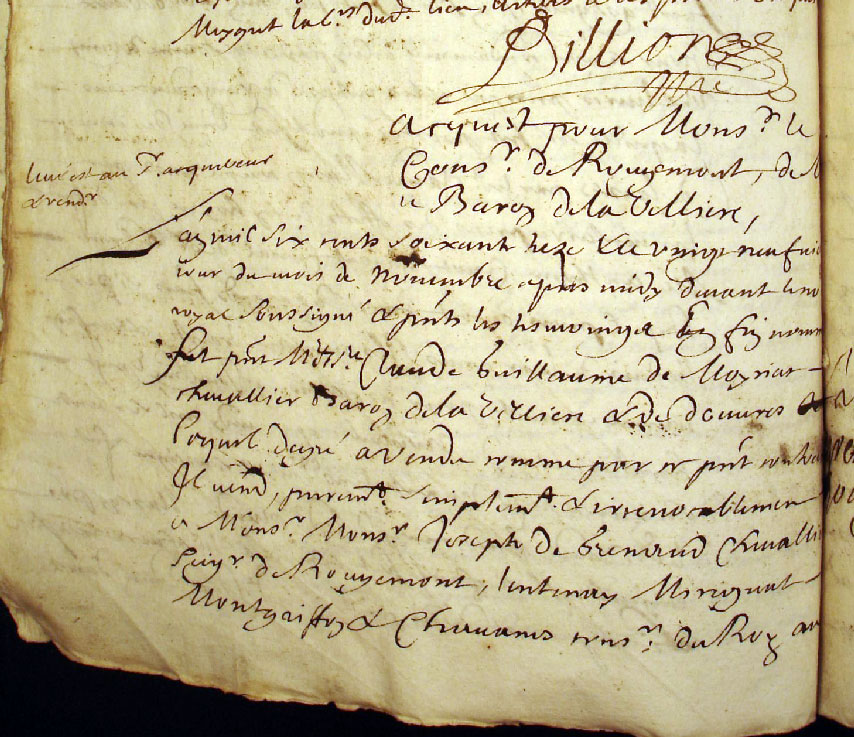 Billion
Acquist pour Monsr le
Consr de Rougemont, de
le Baron de la Velliere,
livré est au Sr acquereur
& vendr
L'an mil six cents soixante treze & le vingt neufvie
jour du mois de novembre apres midy devant le no
royal soubsigné & pnts les tesmoings en fin nomm
fut pnt Messre Claude Guillaume de Moyriat
chevallier Baron de la Velliere & de
Lequel de gré a vendu comme par ce pnt
Il vend, puremt simplemt & irrevocablement
a Monsr Monsr Joseph de Grenaud Chevalli
Seigr de Rougemont, lentenay Merignat
Montgriffon & Chavanes consr du Roy au